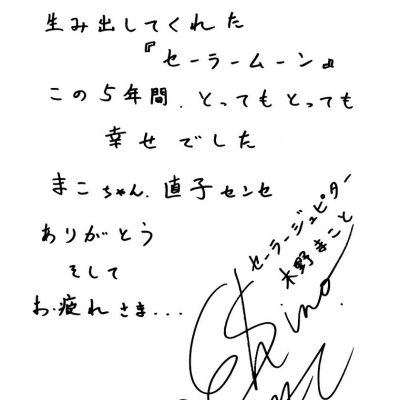 生み出してくれた
『セーラームーン』
この5年間、とってもとっても
幸せでした
まこちゃん、直子センセ
ありがとう
そして
お疲れさま...
セーラージュピター
木野まこと